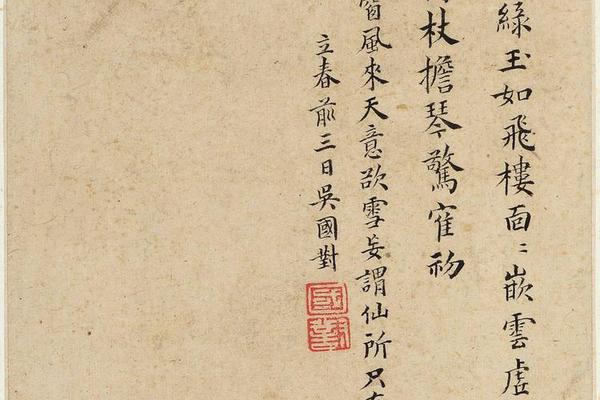 綠玉如飛樓面〻嵌雲虛
杖擔琴驚寉礽
窗風來天意欲雪妄謂仙所只
立春前三日吳國對
國對